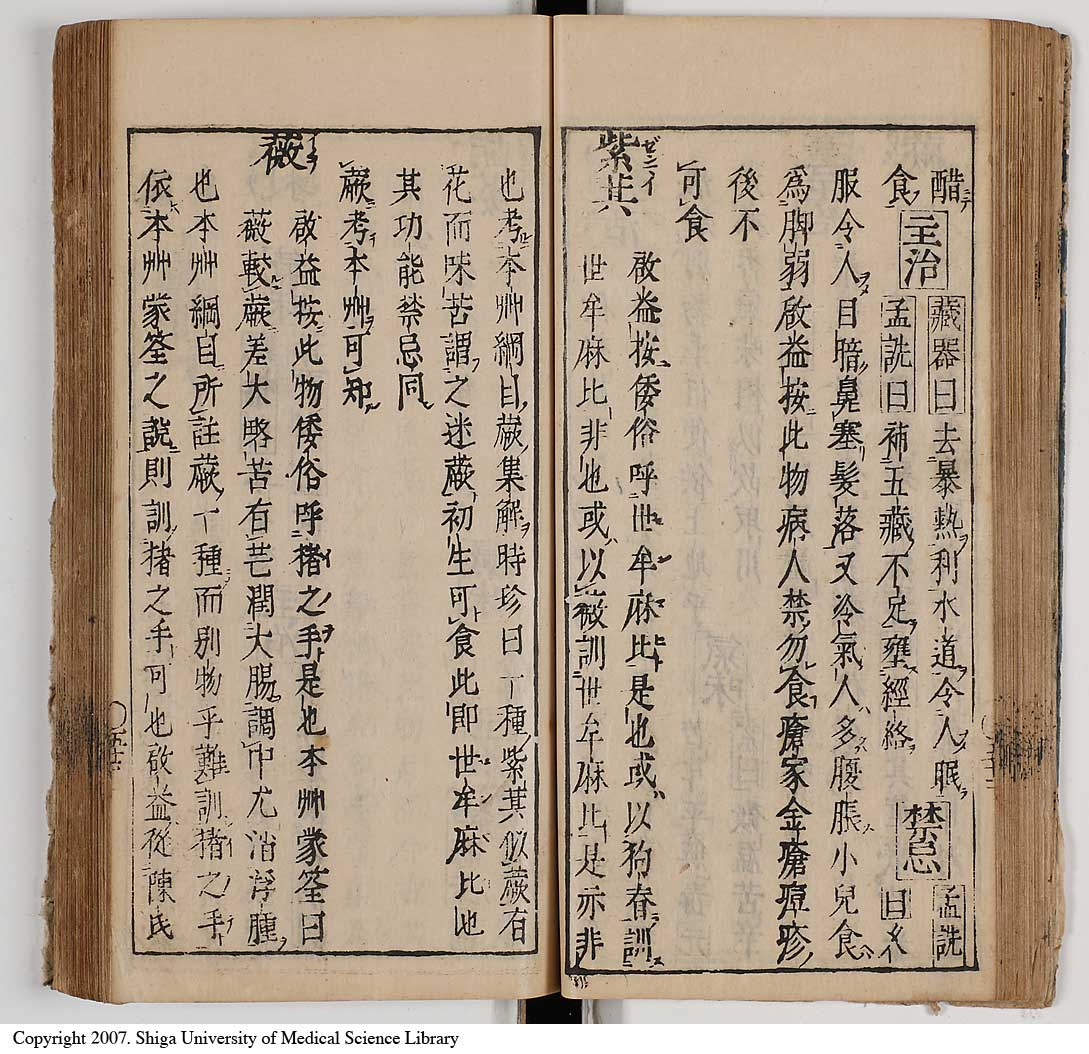 醋食主治藏器曰去暴熱利水道令人睡禁忌孟詵曰久
食孟詵曰補五藏不足壅經絡
服令人目暗鼻塞髮落又冷氣人多腹脹小兒食
為脚弱啟益按此物病人禁勿食瘡家金瘡痘疹
後不
可食
紫萁 ゼンイ
啟益按倭俗呼世牟麻比是也或以狗脊訓
世牟麻比非也或以薇訓世牟麻比是亦非
也考本艸綱目蕨集解時珍曰一種紫萁似蕨有
花而味苦謂之迷蕨初生可食此即世牟麻比也
其功能禁忌同
蕨考本艸可知
薇
啟益按此物倭俗呼猪之手是也本艸蒙筌曰
薇較蕨差大畧苦有芒潤大腸調中尤消浮腫
也本艸綱目所註蕨一種而別物乎難訓猪之手
依本艸蒙筌之說則訓猪之手可也啟益從陳氏
Copyright 2007. Shiga University of Medical Science Library